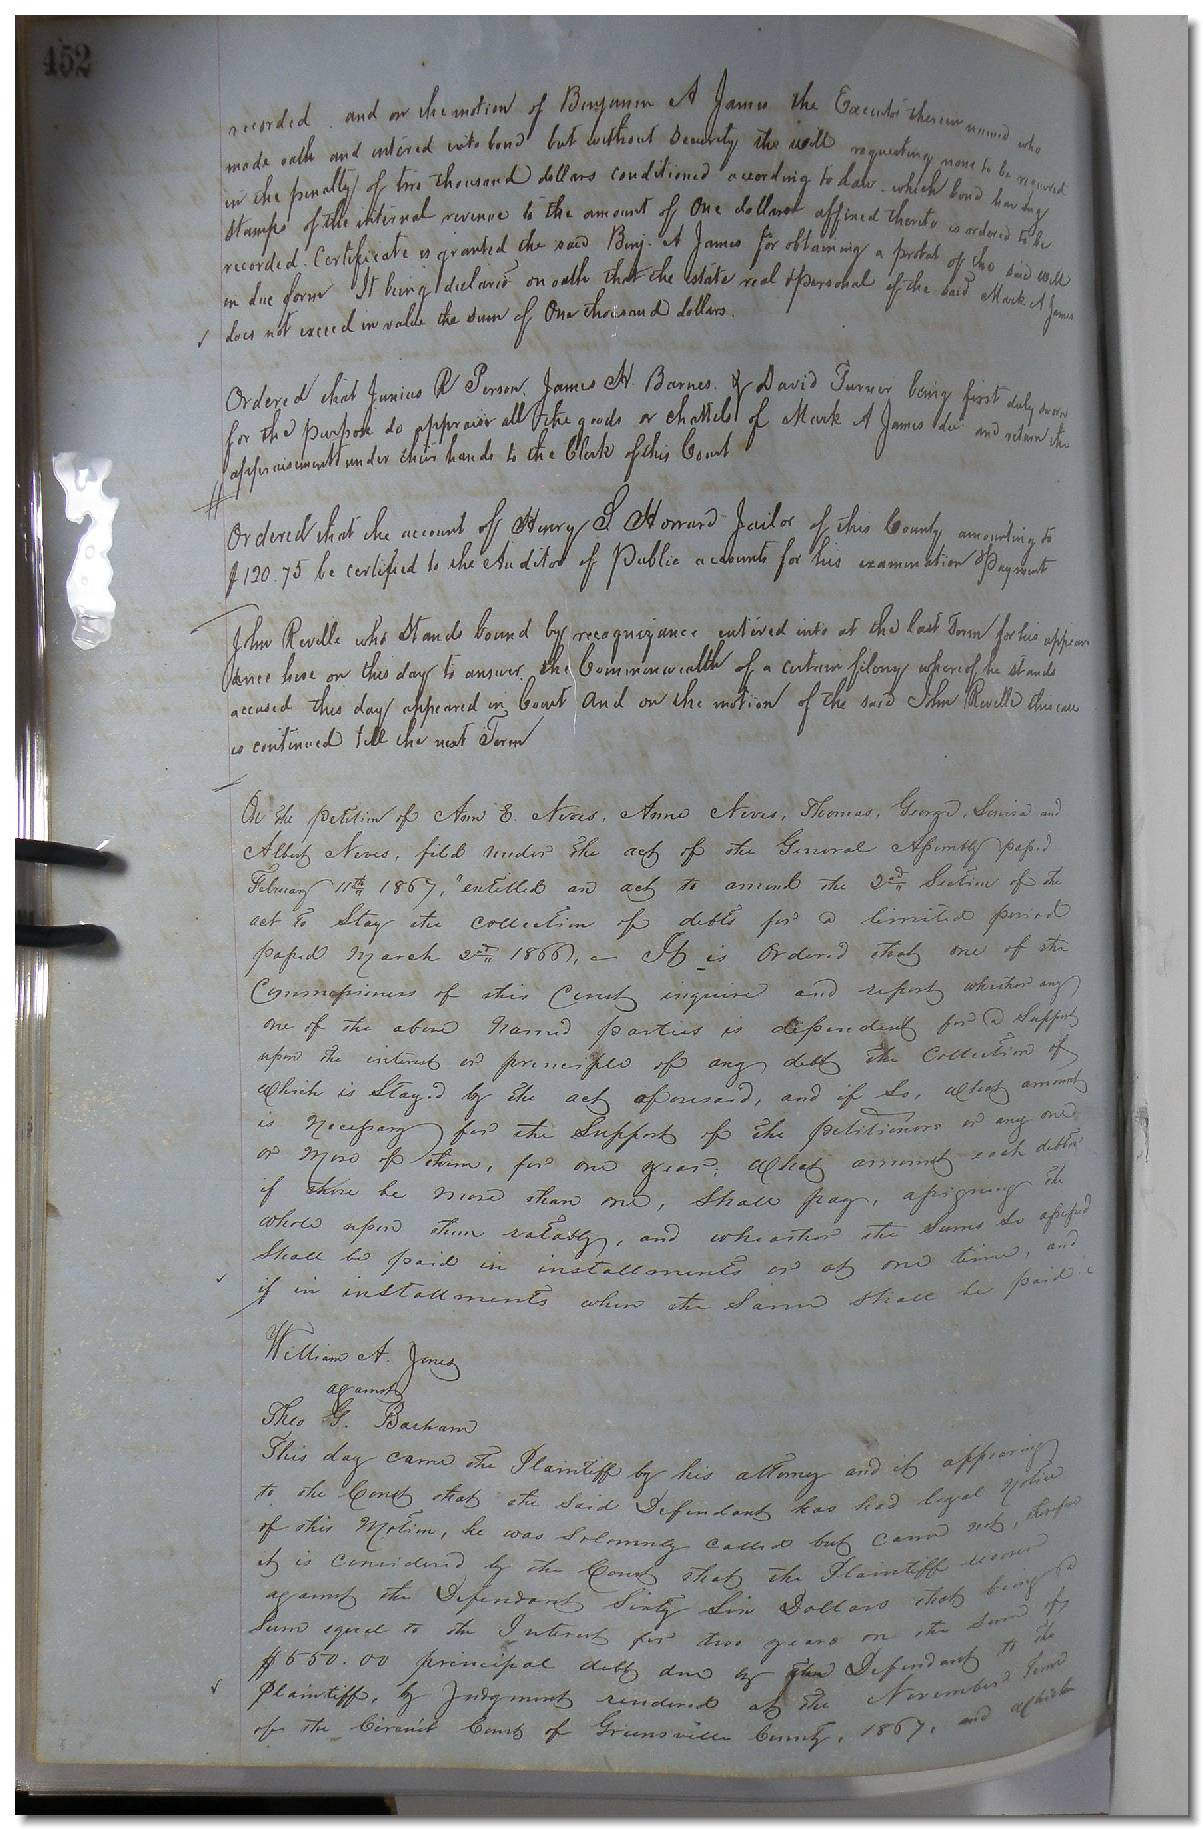 452
recorded. and on the motion of Benjamin A James the Executor therein named who
made oath and entered into bond but without Security the will requesting none to be required
in the penalty of two thousand dollars conditioned according to law. which bond having
stamps of the internal revenue to the amount of One dollar affixed thereto is ordered to be
recorded. Certificate is granted the said Benj. A James for obtaining a probat of the said will
in due form It being declared on oath that the estate real & personal of the said Mark A James
does not exceed in value the sum of One thousand dollars.
Ordered that Junius R Person, James H Barnes. & David Turner being first duly sworn
for the purpose do appraise all the goods or chattels of Mark A James dec and return the
appraisement under their hands to the Clerk of this Court
Ordered that the account of Henry S. Howard Jailor of this County amounting to
$120.75 be certified to the Auditor of Public accounts for his examination & Payment
John Revelle who Stands bound by recognizance entered into at the last Term for his appear
ance here on this day to answer the Commonwealth of a certain felony whereof he stands
accused this day appeared in Court And on the motion of the said John Revelle this case
is continued till the next Term
On the petition of Ann E. Neves, Anna Neves, Thomas, George, Louisa and
Albert Neves, filed under the act of the General Assembly passed
February 11th 1867, "entitled an act to amend the 2nd Section of the
act to Stay the collection of debts for a limited period
passed March 2nd 1866, — It is Ordered that one of the
Commissioners of this Court inquire and report whether any
one of the above named parties is dependent for a Support
upon the interest or principle of any debt the Collection of
which is Stayed by the act aforesaid, and if So, What amount
is Necessary for the Support of the petitioners or any one
or More of them, for one year; What amount each debtor
if there be more than one, Shall pay, assigning the
whole upon them ratably, and wheather the Sums So assessed
Shall be paid in installments or at one time, and
if in installments when the Same Shall be paid.
William A. Jones
against
Theo G. Bacham
This day came the Plaintiff by his attorney and it appearing
to the Court that the Said Defendant has had legal Notice
of this Motion, he was Solemnly called but came not, therefore
it is considered by the Court that the Plaintiff recover
against the Defendant Sixty Six Dollars that being a
Sum equal to the Interest for two years on the Sum of
$550.00 principal debt due by the Defendant to the
Plaintiff, by Judgment rendered at the November Term
of the Circuit Court of Greensville County, 1867, and which